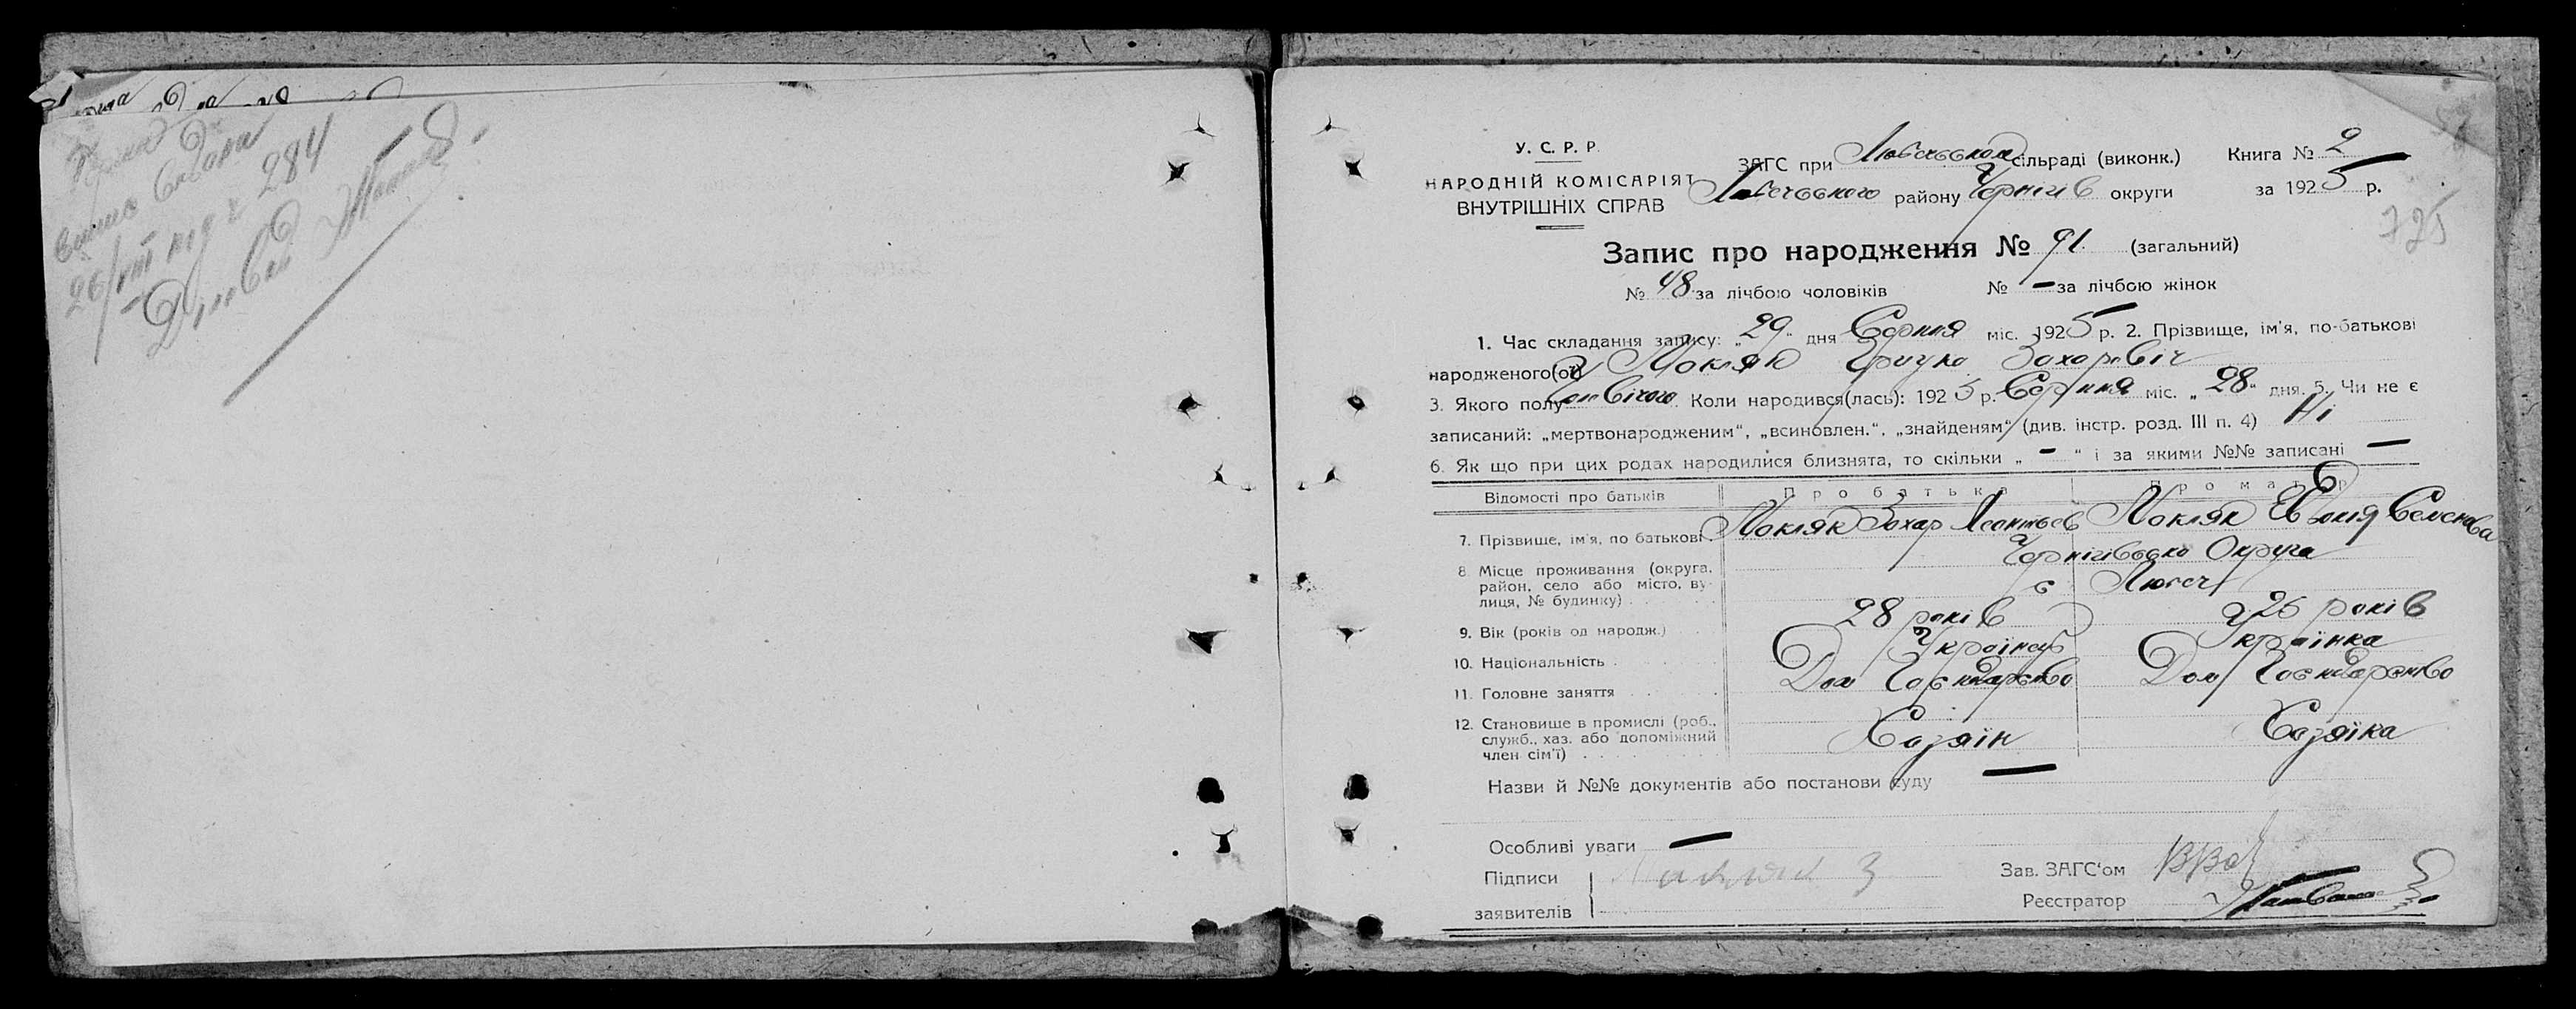 284
У. С. Р. Р.
НАРОДНІЙ КОМІСАРІЯТ
ВНУТРІШНІХ СПРАВ
ЗАГС при Любечськом сільраді (виконк.) Книга № 2
Любечського району Чернігів округи за 1925 р.
725
Запис про народження № 91 (загальний)
№ 48 за лічбою чоловіків № — за лічбою жінок
1. Час складання запису: „29“ дня Серпня міс. 1925 р. 2. Прізвище, ім'я, по-батькові
народженого(ої) Покляк Грицко Захаровіч
3. Якого полу чоловічого Коли народився(лась): 1925 р. Серпня міс. „28“ дня. 5. Чи не є
записаний: „мертвонародженим“, „всиновлен.“, „знайденям“ (див. інстр. розд. III п. 4) Ні
6. Як що при цих родах народилися близнята, то скільки „ — “ і за якими №№ записані —
Відомості про батьків Про батька Про матір
7. Прізвище, ім'я, по батькові Покляк Захар Леонтьев Покляк Евдокія Семенова
8. Місце проживання (округа, район, село або місто, вулиця, № будинку) Чернігівсько Округа
с Любеч
9. Вік (років од народж.) 28 років 26 років
10. Національність Українець Українка
11. Головне заняття Дом Госендарство Дом Госендарство
12. Становище в промислі (роб., служб., хаз. або допоміжний член сім'ї) Хазяїн Хазяїка
Назви й №№ документів або постанови суду —
Особливі уваги —
Підписи Покляк З Зав. ЗАГС'ом
заявителів Реєстратор